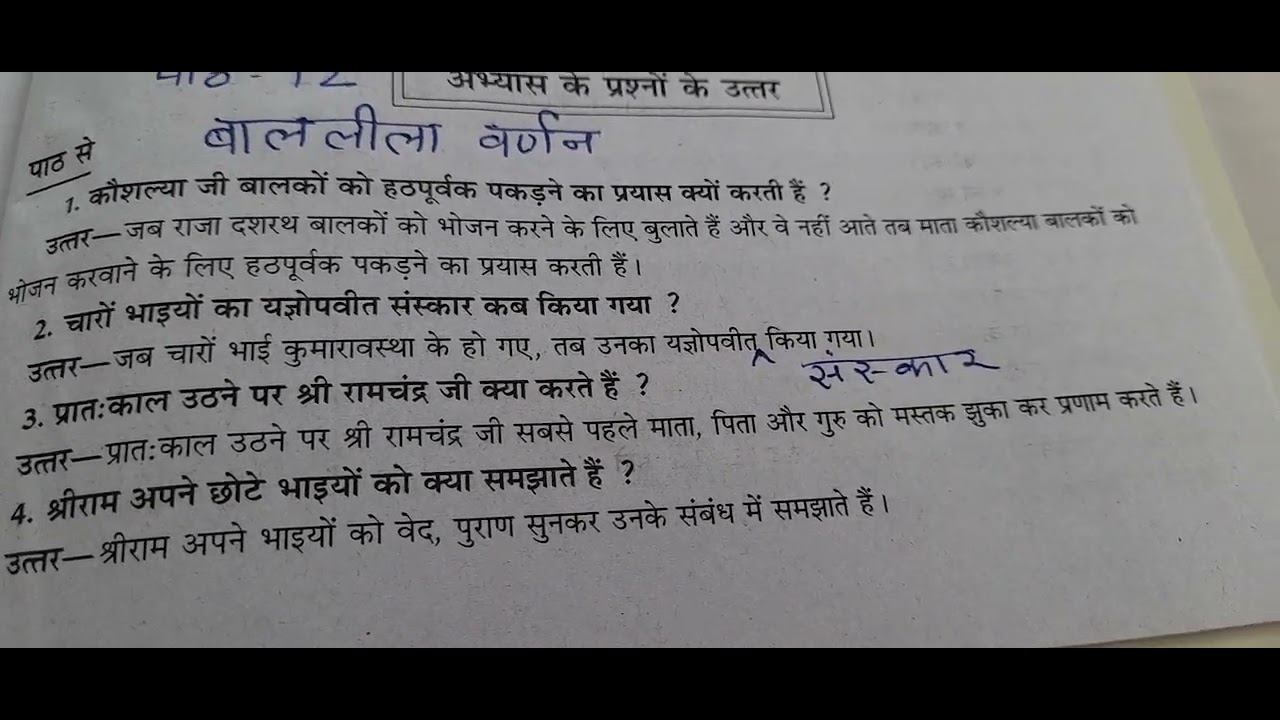 पाठ - 12
अभ्यास के प्रश्नों के उत्तर
बाललीला वर्णन
पाठ से
1. कौशल्या जी बालकों को हठपूर्वक पकड़ने का प्रयास क्यों करती हैं ?
उत्तर—जब राजा दशरथ बालकों को भोजन करने के लिए बुलाते हैं और वे नहीं आते तब माता कौशल्या बालकों को
भोजन करवाने के लिए हठपूर्वक पकड़ने का प्रयास करती हैं।
2. चारों भाइयों का यज्ञोपवीत संस्कार कब किया गया ?
उत्तर—जब चारों भाई कुमारावस्था के हो गए, तब उनका यज्ञोपवीत किया गया।
संस्कार
3. प्रातःकाल उठने पर श्री रामचंद्र जी क्या करते हैं ?
उत्तर—प्रातःकाल उठने पर श्री रामचंद्र जी सबसे पहले माता, पिता और गुरु को मस्तक झुका कर प्रणाम करते हैं।
4. श्रीराम अपने छोटे भाइयों को क्या समझाते हैं ?
उत्तर—श्रीराम अपने भाइयों को वेद, पुराण सुनकर उनके संबंध में समझाते हैं।